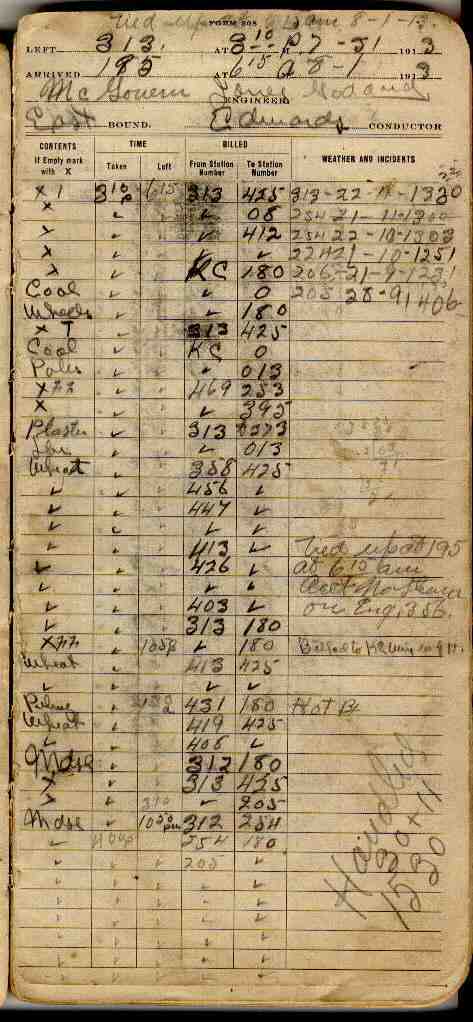 Tied up at 6 15 am 8-1-13.
FORM 808
LEFT 313. AT 3 10 P M 7-31 1913
ARRIVED 195 AT 6 15 A 8-1 1913
McGovern Jones Godard
ENGINEER
East BOUND. Edwards CONDUCTOR
CONTENTS TIME BILLED WEATHER AND INCIDENTS
If Empty mark with X Taken Left From Station Number To Station Number
X 1 3 10 P 6 15 313 425 313-22-11-1330
X ✓ ✓ ✓ 08 254 21-11-1300
X ✓ ✓ ✓ 412 254 22-10-1303
X ✓ ✓ ✓ ✓ 22421-10-1251
X ✓ ✓ KC 180 206-21-9-1231
Coal ✓ ✓ ✓ 0 205 28-9 1406
Wheels ✓ ✓ ✓ 180
X T ✓ ✓ 313 425
Coal ✓ ✓ KC 0
Poles ✓ ✓ ✓ 013
X ✓ ✓ 469 253
X ✓ ✓ ✓ 395
Plaster ✓ ✓ 313
✓ ✓ ✓ 013
Wheat ✓ ✓ 358 425
✓ ✓ ✓ 456 ✓
✓ ✓ ✓ 447 ✓
✓ ✓ ✓ ✓ ✓
✓ ✓ ✓ 413 ✓ Tied up at 195
✓ ✓ ✓ 426 ✓ at 6 15 am
✓ ✓ ✓ ✓ ✓ Acct No
✓ ✓ ✓ 403 ✓ on Eng, 356.
✓ ✓ ✓ 313 180
✓ ✓ 180 Billed to KC
Wheat ✓ ✓ 413 425
✓ ✓ ✓ ✓ ✓
✓ 431 180 Hot B
Wheat ✓ ✓ 419 425
✓ ✓ ✓ 408 ✓
Mdse ✓ ✓ 312 180
X ✓ ✓ 313 425
X ✓ 310 ✓ 205
Mdse ✓ 10 30 pm 312 254
✓ 254 180
✓ ✓ ✓ 205 ✓
Handled
30+11
1530